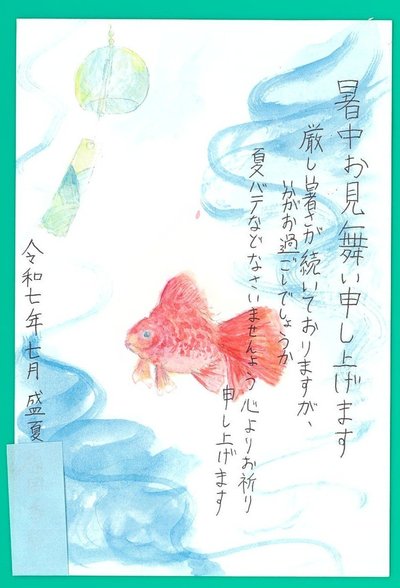 暑中お見舞い申し上げます
厳しい暑さが続いておりますが、
いかがお過ごしでしょうか
夏バテなどなさいませんよう心よりお祈り
申し上げます
令和七年七月 盛夏